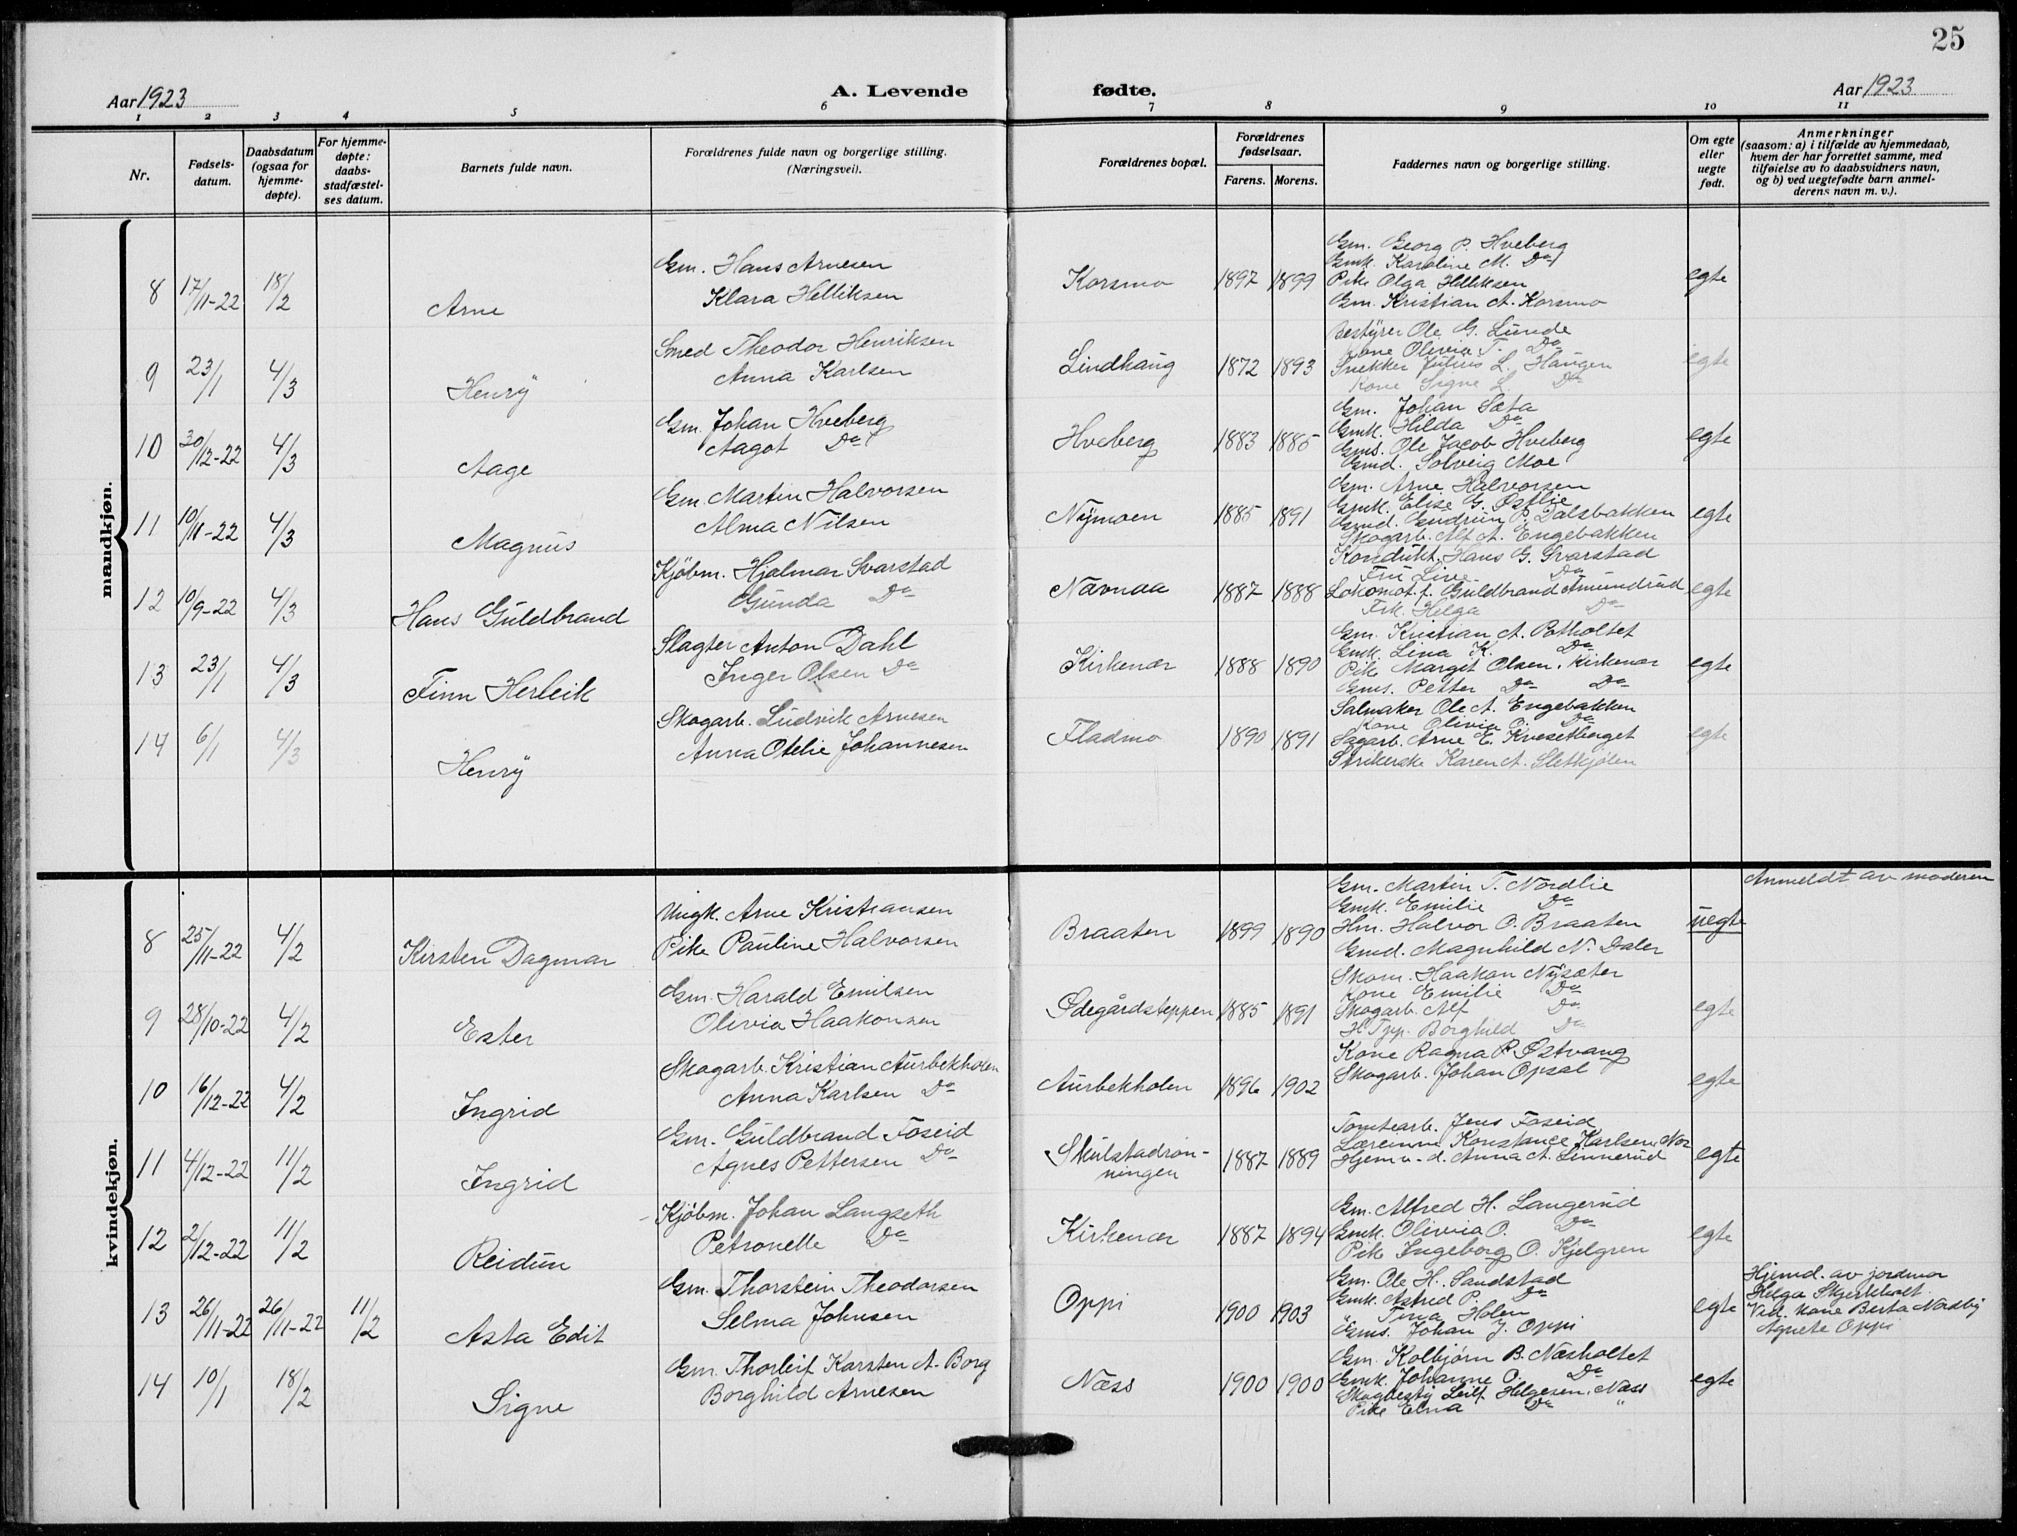 25
Aar 1923
A. Levende fødte.
Aar 1923
1 2 3 4 5 6 7 8 9 10 11
Nr.
Fødsels-
datum.
Daabsdatum
(ogsaa for
hjemme-
døpte).
For hjemme-
døpte:
daabs-
stadfæstel-
ses datum.
Barnets fulde navn.
Forældrenes fulde navn og borgerlige stilling.
(Næringsvei).
Forældrenes bopæl.
Forældrenes
fødselsaar.
Farens. Morens.
Faddernes navn og borgerlige stilling.
Om egte
eller
uegte
født.
Anmerkninger
(saasom: a) i tilfælde av hjemmedaab,
hvem der har forrettet samme, med
tilføielse av to daabsvidners navn,
og b) ved uegtefødte barn anmel-
derens navn m. v.).
mandkjøn.
8 17/11-22 18/2 Arne
Gm. Hans Arnesen
Klara Helliksen
Korsmo 1897 1899
Gm. Georg P. Hveberg
Gmk. Karoline M. Do
Pike Olga Helliksen
Gm. Kristian A. Korsmo
egte
9 23/1 4/3 Henry
Smed Theodor Henriksen
Anna Karlsen
Lindhaug 1872 1893
Bestyrer Ole G. Lunde
Kone Olivia T. Do
Snekker Julius L. Haugen
Kone Signe L. Do
egte
10 30/12-22 4/3 Aage
Gm. Johan Hveberg
Aagot Do
Hveberg 1883 1885
Gm. Johan Sæta
Gmk. Hilda Do
Gms. Ole Jacob Hveberg
Gmd. Solveig Moe
egte
11 10/11-22 4/3 Magnus
Gm. Martin Halvorsen
Alma Nilsen
Nymoen 1885 1891
Gm. Arne Halvorsen
Gmk. Elise G. Østlie
Gmd. Gudrun P. Dalsbakken
Skogarb. Alf A. Engebakken
egte
12 10/9-22 4/3 Hans Guldbrand
Kjøbm. Hjalmar Svarstad
Gunda Do
Navnaa 1887 1888
Kondukt. Hans G. Svarstad
Fru Live Do
Lokomot.f. Guldbrand Amundrud
Frk. Helga Do
egte
13 23/1 4/3 Finn Herleik
Slagter Anton Dahl
Inger Olsen Do
Kirkenær 1888 1890
Gm. Kristian A. Potholtet
Gmk. Lina K. Do
Pike Margit Olsen, Kirkenær
Gms. Petter Do Do
egte
14 6/1 4/3 Henry
Skogarb. Ludvik Arnesen
Anna Otelie Johannesen
Fladmo 1890 1891
Salmaker Ole A. Engebakken
Kone Olivia O. Do
Sagarb. Arne E. Kvesetberget
Strikerske Karen A. Sletkjølen
egte
kvindekjøn.
8 25/11-22 4/2 Kirsten Dagmar
Ungk. Arne Kristiansen
Pike Pauline Halvorsen
Braaten 1899 1890
Gm. Martin T. Nordlie
Gmk. Emilie Do
Hm. Halvor O. Braaten
Gmd. Magnhild N. Daler
uegte
Anmeldt av moderen
9 28/10-22 4/2 Ester
Gm. Harald Emilsen
Olivia Haakonsen
Ødegårdsteppen 1885 1891
Skom. Haakon Nysæter
Kone Emilie Do
Skogarb. Alf Do
Borghild Do
egte
10 16/12-22 4/2 Ingrid
Skogarb. Kristian Aurbekholen
Anna Karlsen Do
Aurbekholen 1896 1902
Kone Ragna P. Østvang
Skogarb. Johan Opsal
egte
11 4/12-22 11/2 Ingrid
Gm. Guldbrand Foseid
Agnes Pettersen Do
Skulstadrøn-
ningen 1887 1889
Tomtearb. Jens Foseid
Lærerinne Konstance Karlsen, Nor
Hjemv. d. Anna A. Linnerud
egte
12 2/12-22 11/2 Reidun
Kjøbm. Johan Langseth
Petronelle Do
Kirkenær 1887 1894
Gm. Alfred H. Langerud
Gmk. Olivia O. Do
Pike Ingeborg O. Kjelgren
egte
13 26/11-22 26/11-22 11/2 Asta Edit
Gm. Thorstein Theodorsen
Selma Johnsen
Oppi 1900 1903
Gm. Ole H. Sandstad
Gmk. Astrid P. Do
" Tina Holen
Gms. Johan J. Oppi
egte
Hjemd. av jordmor
Helga Skjerkholt.
Vid. kone Berta Nordby
Agnete Oppi
14 10/1 18/2 Signe
Gm. Thorleif Karsten A. Borg
Borghild Arnesen
Næss 1900 1900
Gm. Kolbjørn B. Næsholtet
Gmk. Johanne O. Do
Skogbesty. Leif Helgesen, Næss
Pike Elna Do "
egte